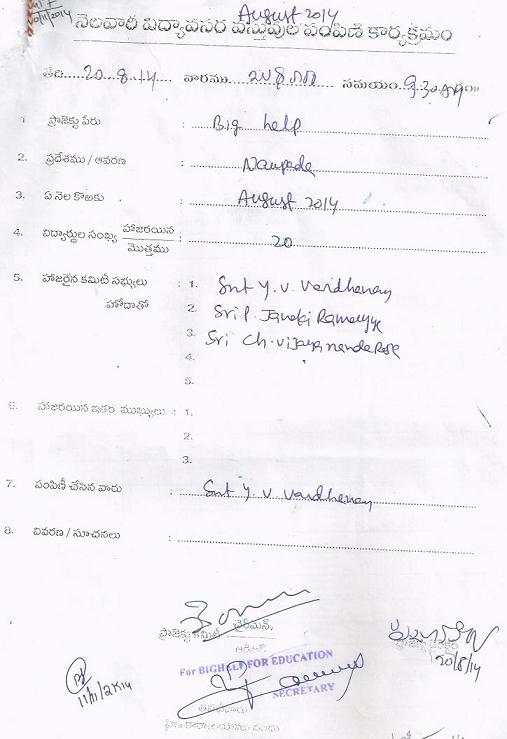 August 2014
10/11/2014
నెలవారీ విద్యావసర వస్తువుల పంపిణి కార్యక్రమం
తేది 20.8.14 వారము బుధ సమయం 9.30
1 ప్రాజెక్టు పేరు : Big help
2. ప్రదేశము / ఆవరణ : Naupada
3. ఏ నెల కొఱకు : August 2014
4. విద్యార్థుల సంఖ్య హాజరయిన / మొత్తము : 20
5. హాజరైన కమిటీ సభ్యులు : 1. Smt Y. V. Vardhanam
హోదాతో 2. Sri P. Janaki Ramayya
3. Sri Ch. Vijaya nanda Rose
4.
5.
6. హాజరయిన ఇతర ముఖ్యులు : 1.
2.
3.
7. పంపిణీ చేసిన వారు : Smt Y. V. Vardhanam
8. వివరణ / సూచనలు :
ప్రాజెక్టు కమిటీ ఛైర్మన్,
ఆడిటర్
20/8/14
For BIGHELP FOR EDUCATION
11/11/2K14
SECRETARY